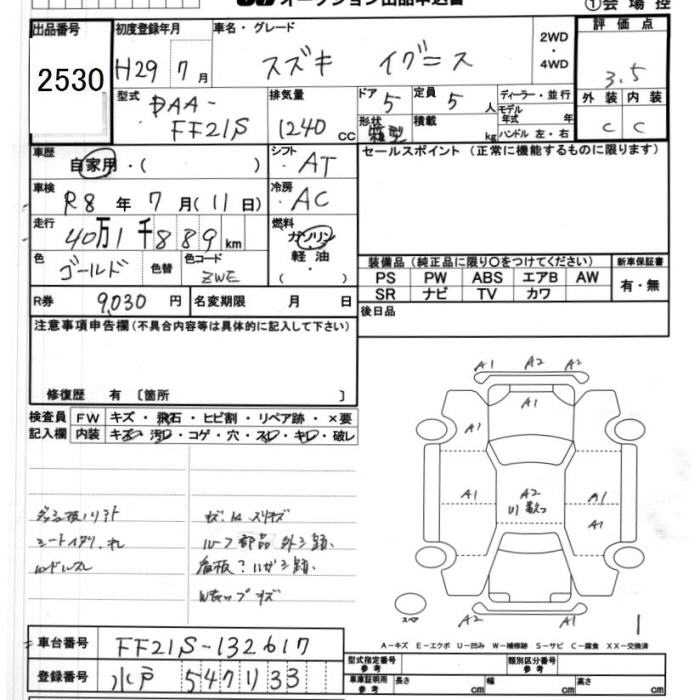 オークション出品申込書
①会場控
出品番号 初度登録年月 車名・グレード 2WD・4WD 評価点
2530 H29 7月 スズキ イグニス 3.5
型式 DAA-FF21S 排気量 1240 cc ドア 5 定員 5人 ディーラー・並行 外装 内装
形状 箱型 積載 kg モデル年式 年 ハンドル 左・右 C C
車歴 自家用・( ) シフト・AT セールスポイント (正常に機能するものに限ります)
車検 R8年7月(11日) 冷房・AC
走行 40万1千889km 燃料 ガソリン 軽油・
色 ゴールド 色替 色コード ZWE 装備品 (純正品に限り○をつけてください) 新車保証書
PS PW ABS エアB AW 有・無
SR ナビ TV カワ
R券 9,030円 名変期限 月 日 後日品
注意事項申告欄(不具合内容等は具体的に記入して下さい)
修復歴 有 [箇所 ]
検査員 FW キズ・飛石・ヒビ割・リペア跡・×要
記入欄 内装 キズ・汚・コゲ・穴・スレ・キレ・破レ
A1 A2 A2
A1
A1
A1 A2 A1
U1 A1
シートイタミ
ハンドルスレ
ルーフ部品外シ跡
看板?ハガシ跡
スペア
A2 A1
1
A-キズ E-エクボ U-凹み W-補修跡 S-サビ C-腐食 XX-交換済
車台番号 FF21S-132617
型式指定番号 参考 類別区分番号 参考
登録番号 水戸 547 リ 33
車庫証明用 参考 長さ cm 幅 cm 高さ cm